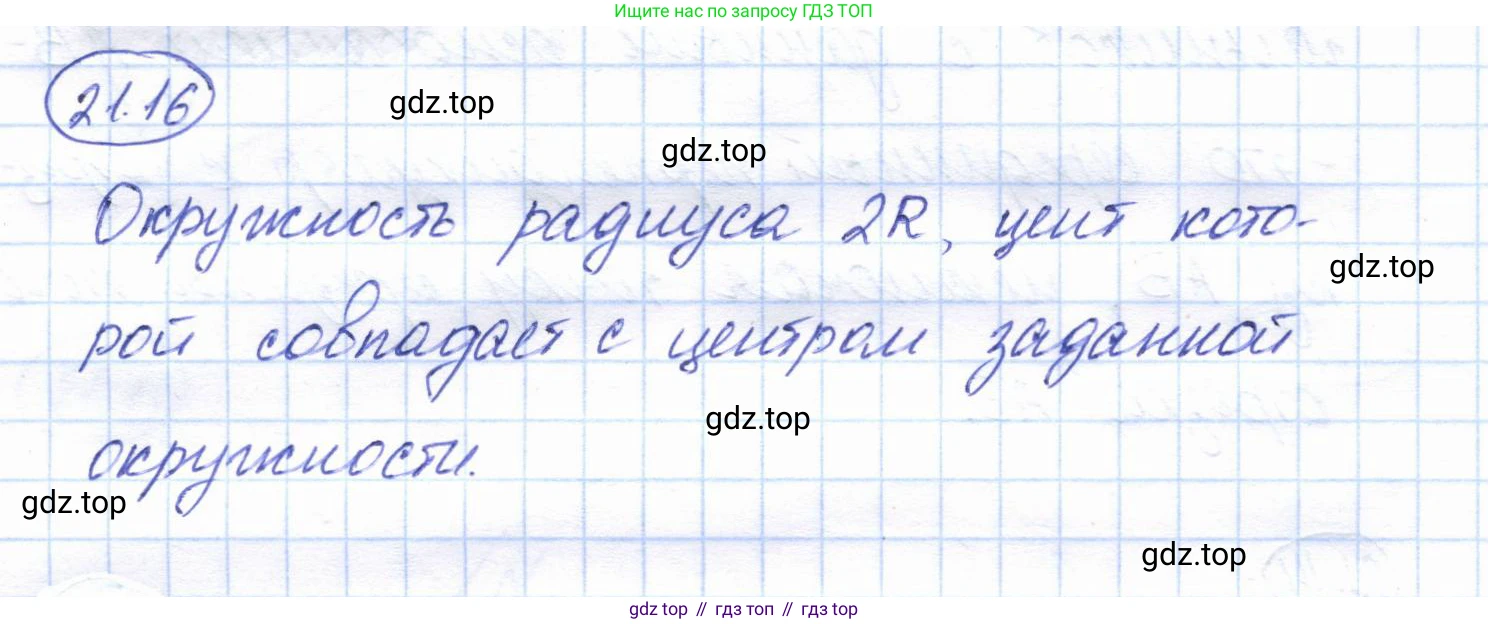 Ищите нас по запросу ГДЗ ТОП
21.16
gdz.top
gdz.top
Окружность радиуса 2R, цент кото-
gdz.top
рой совпадает с центром заданной
gdz.top
окружности.
gdz.top
gdz.top
gdz top // гдз топ // гдз top